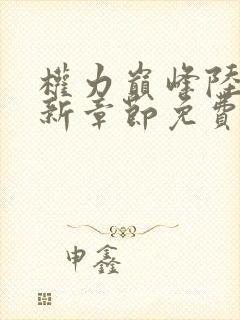 權力巔峰陸
新章節免費
申鑫